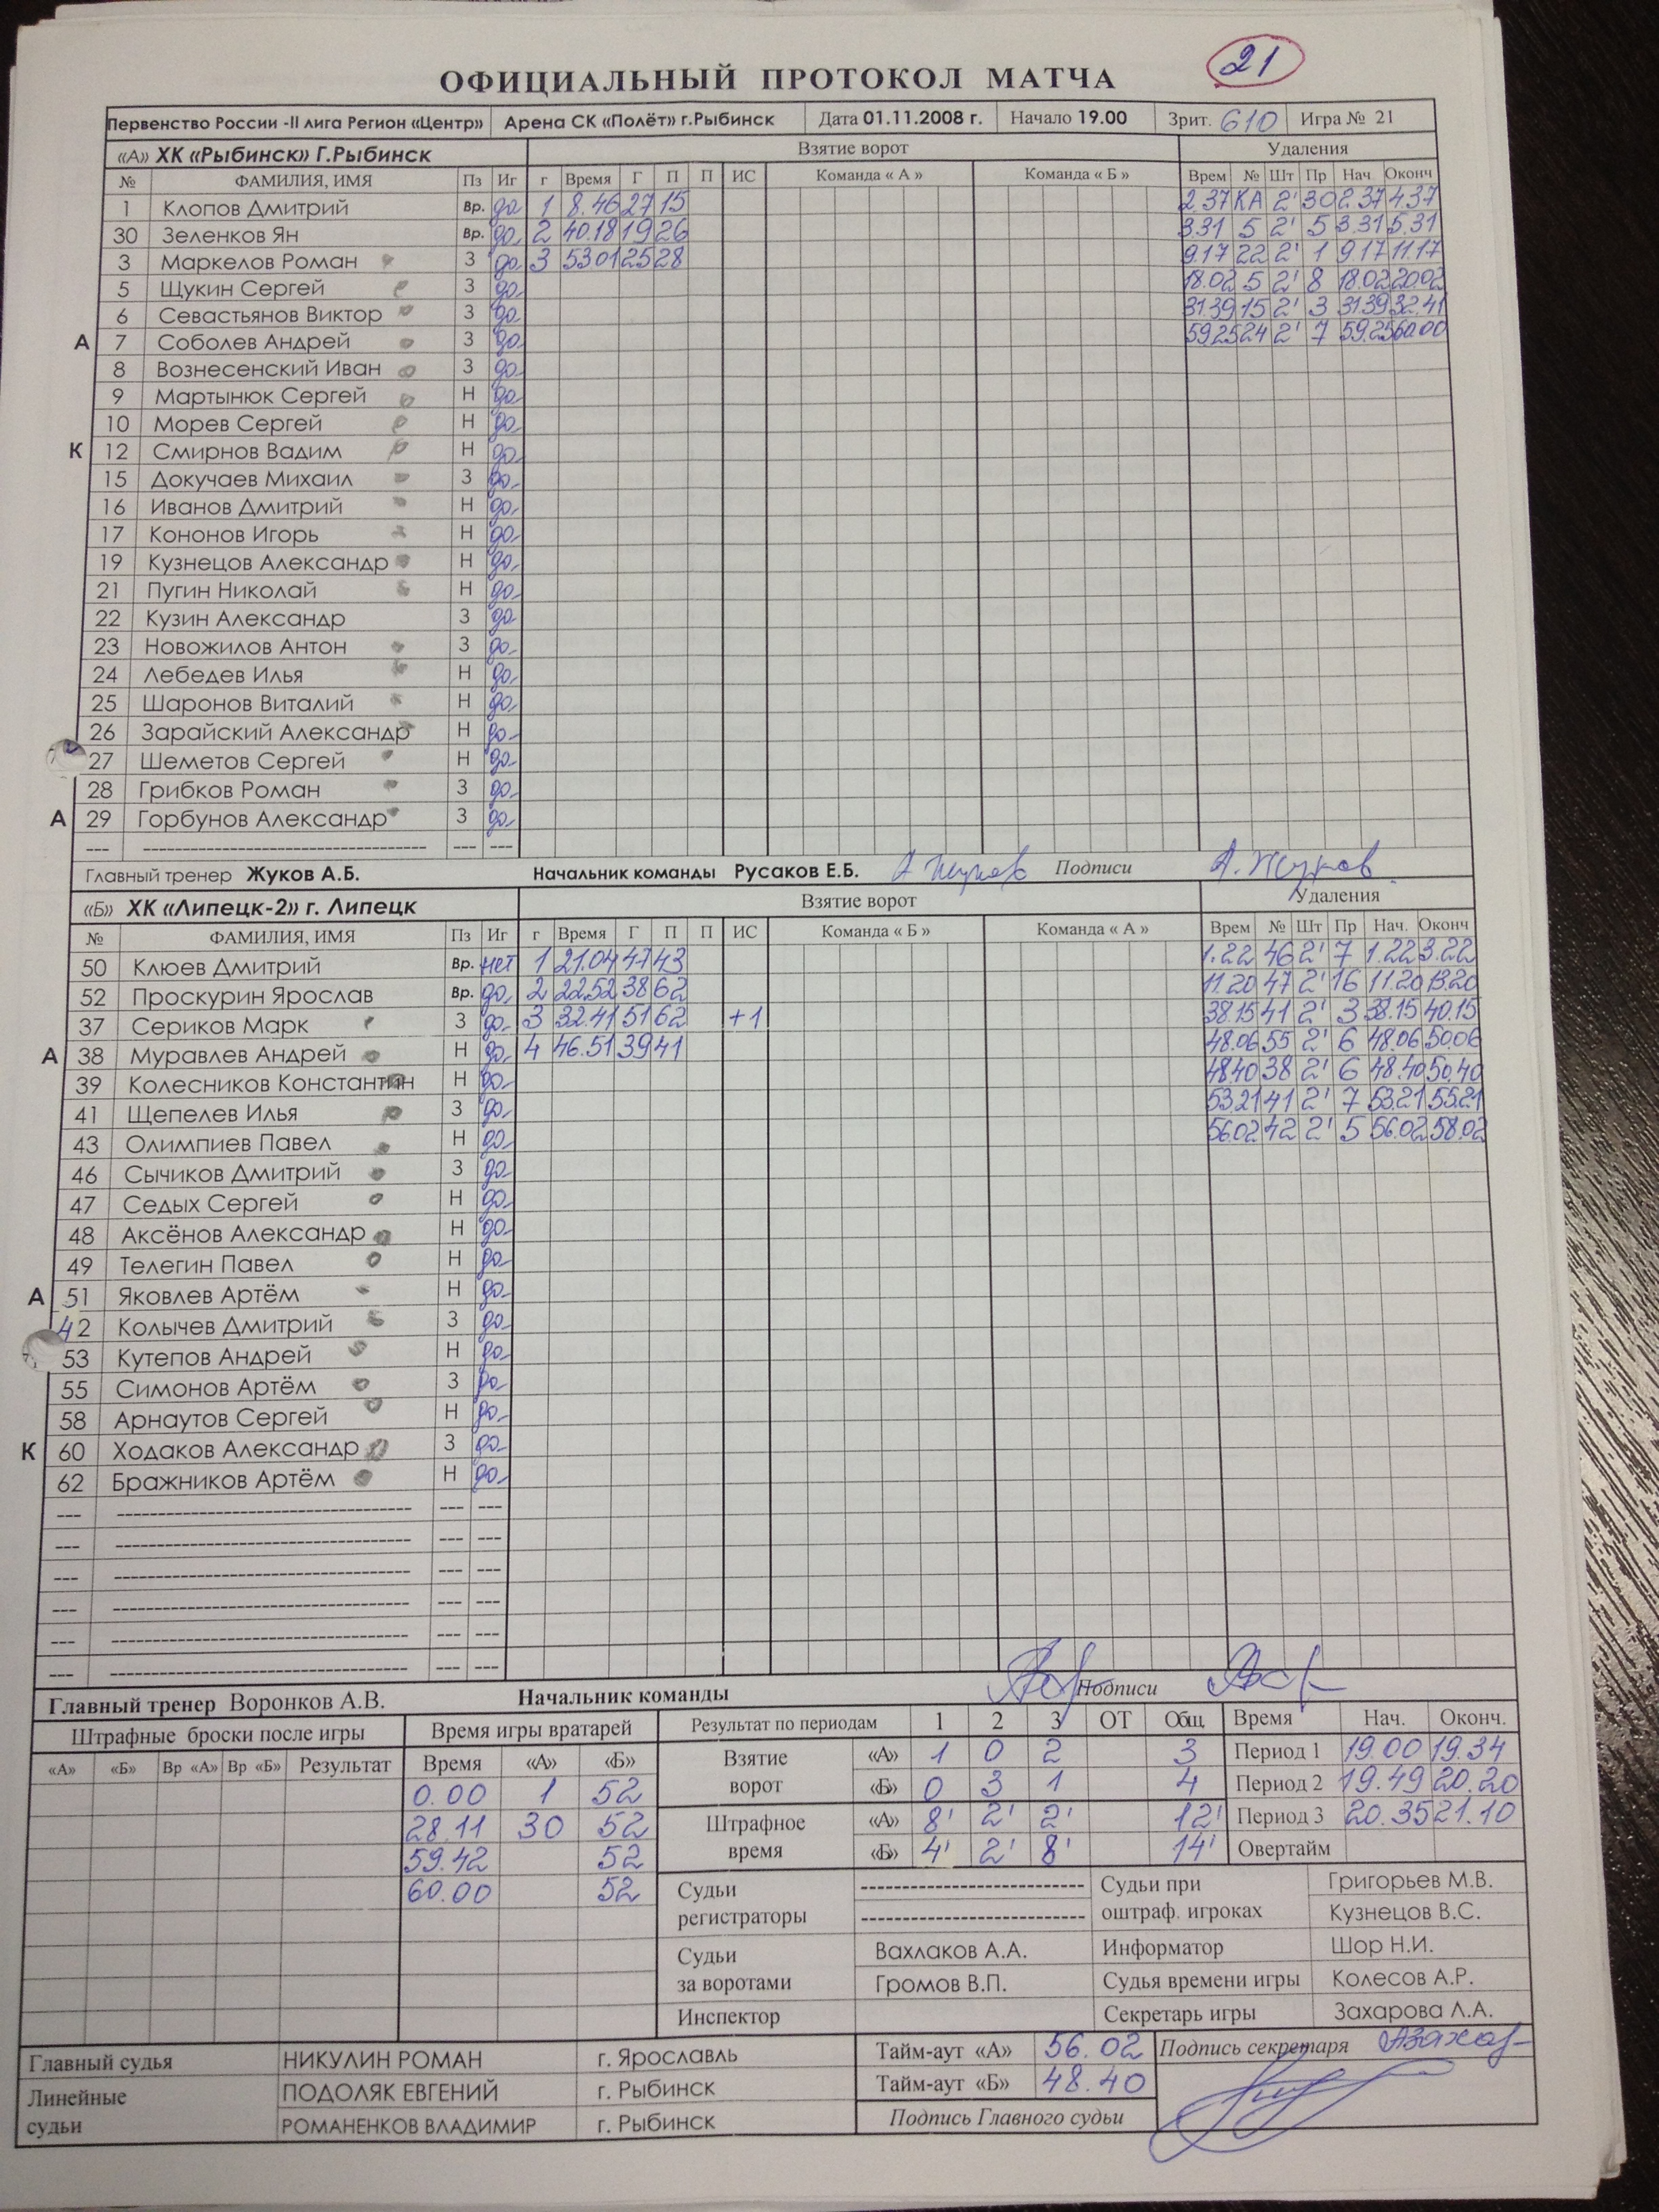 21
ОФИЦИАЛЬНЫЙ ПРОТОКОЛ МАТЧА
Первенство России -II лига Регион «Центр» Арена СК «Полёт» г.Рыбинск Дата 01.11.2008 г. Начало 19.00 Зрит. 610 Игра № 21
«А» ХК «Рыбинск» Г.Рыбинск Взятие ворот Удаления
№ ФАМИЛИЯ, ИМЯ Пз Иг г Время Г П П ИС Команда « А » Команда « Б » Врем № Шт Пр Нач. Оконч
1 Клопов Дмитрий Вр. да 1 8.46 27 15 2.37 КА 2' 30 2.37 4.37
30 Зеленков Ян Вр. да 2 40.18 19 26 3.31 5 2' 5 3.31 5.31
3 Маркелов Роман З да 3 53.01 25 28 9.17 22 2' 1 9.17 11.17
5 Щукин Сергей З да 18.02 5 2' 8 18.02 20.02
6 Севастьянов Виктор З да 31.39 15 2' 3 31.39 32.41
А 7 Соболев Андрей З да 59.25 24 2' 7 59.25 60.00
8 Вознесенский Иван З да
9 Мартынюк Сергей Н да
10 Морев Сергей Н да
К 12 Смирнов Вадим Н да
15 Докучаев Михаил З да
16 Иванов Дмитрий Н да
17 Кононов Игорь Н да
19 Кузнецов Александр Н да
21 Пугин Николай Н да
22 Кузин Александр З да
23 Новожилов Антон З да
24 Лебедев Илья Н да
25 Шаронов Виталий Н да
26 Зарайский Александр Н да
27 Шеметов Сергей Н да
28 Грибков Роман З да
А 29 Горбунов Александр З да
--- --- --- ---
Главный тренер Жуков А.Б. Начальник команды Русаков Е.Б. А Жуков Подписи А. Жуков
«Б» ХК «Липецк-2» г. Липецк Взятие ворот Удаления
№ ФАМИЛИЯ, ИМЯ Пз Иг г Время Г П П ИС Команда « Б » Команда « А » Врем № Шт Пр Нач. Оконч
50 Клюев Дмитрий Вр. нет 1 21.04 47 43 1.22 46 2' 7 1.22 3.22
52 Проскурин Ярослав Вр. да 2 22.52 38 62 11.20 47 2' 16 11.20 13.20
37 Сериков Марк З да 3 32.41 51 62 +1 38.15 41 2' 3 38.15 40.15
А 38 Муравлев Андрей Н да 4 46.51 39 41 48.06 55 2' 6 48.06 50.06
39 Колесников Константин Н да 48.40 38 2' 6 48.40 50.40
41 Щепелев Илья З да 53.21 41 2' 7 53.21 55.21
43 Олимпиев Павел Н да 56.02 42 2' 5 56.02 58.02
46 Сычиков Дмитрий З да
47 Седых Сергей Н да
48 Аксёнов Александр Н да
49 Телегин Павел Н да
А 51 Яковлев Артём Н да
42 Колычев Дмитрий З да
53 Кутепов Андрей Н да
55 Симонов Артём З да
58 Арнаутов Сергей Н да
К 60 Ходаков Александр З да
62 Бражников Артём Н да
--- --- --- ---
--- --- --- ---
--- --- --- ---
--- --- --- ---
--- --- --- ---
--- --- --- ---
Главный тренер Воронков А.В. Начальник команды Подписи
Штрафные броски после игры Время игры вратарей Результат по периодам 1 2 3 ОТ Общ. Время Нач. Оконч.
«А» «Б» Вр «А» Вр «Б» Результат Время «А» «Б» Взятие ворот «А» 1 0 2 3 Период 1 19.00 19.34
0.00 1 52 «Б» 0 3 1 4 Период 2 19.49 20.20
28.11 30 52 Штрафное время «А» 8' 2' 2' 12' Период 3 20.35 21.10
59.42 52 «Б» 4' 2' 8' 14' Овертайм
60.00 52 Судьи регистраторы --- Судьи при оштраф. игроках Григорьев М.В.
--- Кузнецов В.С.
Судьи за воротами Вахлаков А.А. Информатор Шор Н.И.
Громов В.П. Судья времени игры Колесов А.Р.
Инспектор Секретарь игры Захарова Л.А.
Главный судья НИКУЛИН РОМАН г. Ярославль Тайм-аут «А» 56.02 Подпись секретаря
Линейные судьи ПОДОЛЯК ЕВГЕНИЙ г. Рыбинск Тайм-аут «Б» 48.40
РОМАНЕНКОВ ВЛАДИМИР г. Рыбинск Подпись Главного судьи